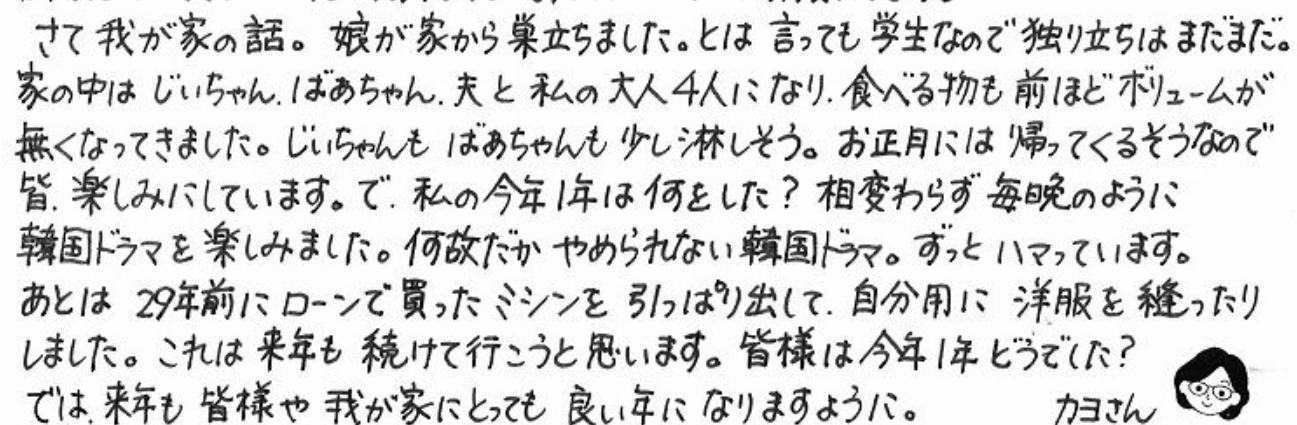 さて 我が家の話。娘が家から巣立ちました。とは 言っても 学生なので 独り立ちは まだまだ。
家の中は じぃちゃん.ばあちゃん.夫と 私の 大人4人になり.食べる物も 前ほど ボリュームが
無くなってきました。じぃちゃんも ばあちゃんも 少し淋しそう。お正月には 帰ってくるそうなので
皆.楽しみにしています。で.私の今年1年は何をした？ 相変わらず 毎晩のように
韓国ドラマを 楽しみました。何故だか やめられない 韓国ドラマ。ずっと ハマっています。
あとは 29年前に ローンで 買った ミシンを 引っぱり出して.自分用に 洋服を 縫ったり
しました。これは 来年も 続けて行こうと思います。皆様は 今年1年どうでした？
では.来年も 皆様や 我が家にとっても 良い年に なりますように。 カヨさん